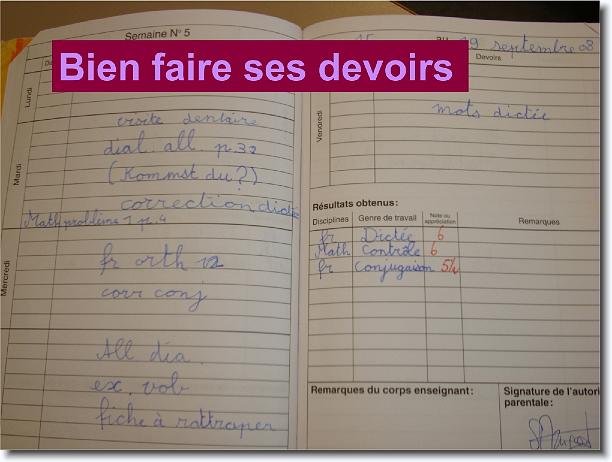 Semaine N° 5
Bien faire ses devoirs
Lundi
Mardi
visite dentaire
dial. all. p.32
(Kommst du?)
correction dictée
Math problème 1 p.4
Mercredi
fr orth 12
corr conj
All dia.
ex. vob
fiche à rattraper
15 au 19 septembre 08
Devoirs
Vendredi
mots dictée
Résultats obtenus:
Disciplines Genre de travail Note ou appréciation Remarques
fr Dictée 6
Math Contrôle 6
fr Conjugaison 5½
Remarques du corps enseignant:
Signature de l'autori
parentale: